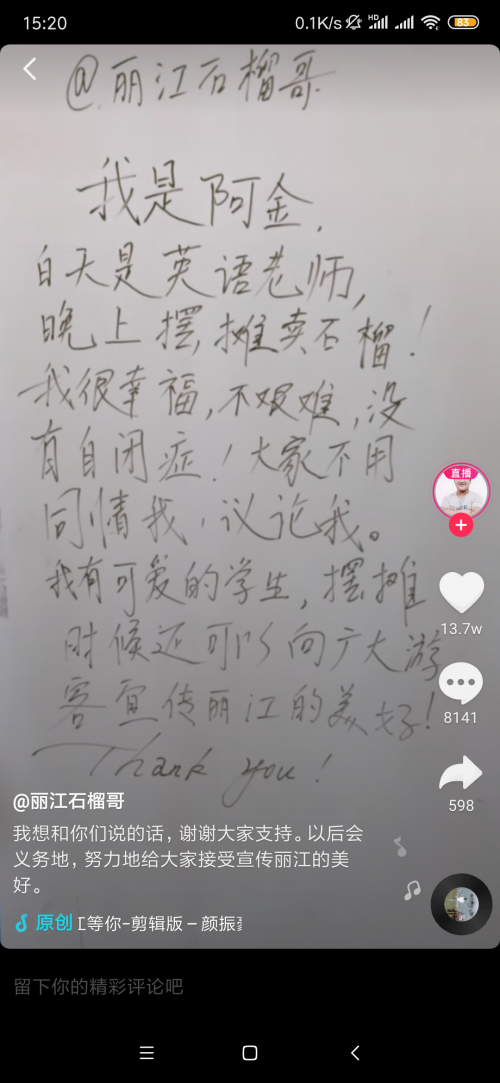 15:20
0.1K/s
HD
83
@丽江石榴哥
我是阿金.
白天是英语老师,
晚上摆摊卖石榴!
我很幸福,不艰难,没
有自闭症!大家不用
同情我,议论我。
我有可爱的学生,摆摊
时候还可以向广大游
客宣传丽江的美好!
Thank you!
直播
13.7w
8141
598
@丽江石榴哥
我想和你们说的话，谢谢大家支持。以后会
义务地，努力地给大家接受宣传丽江的美
好。
原创 江等你-剪辑版 – 颜振豪
留下你的精彩评论吧